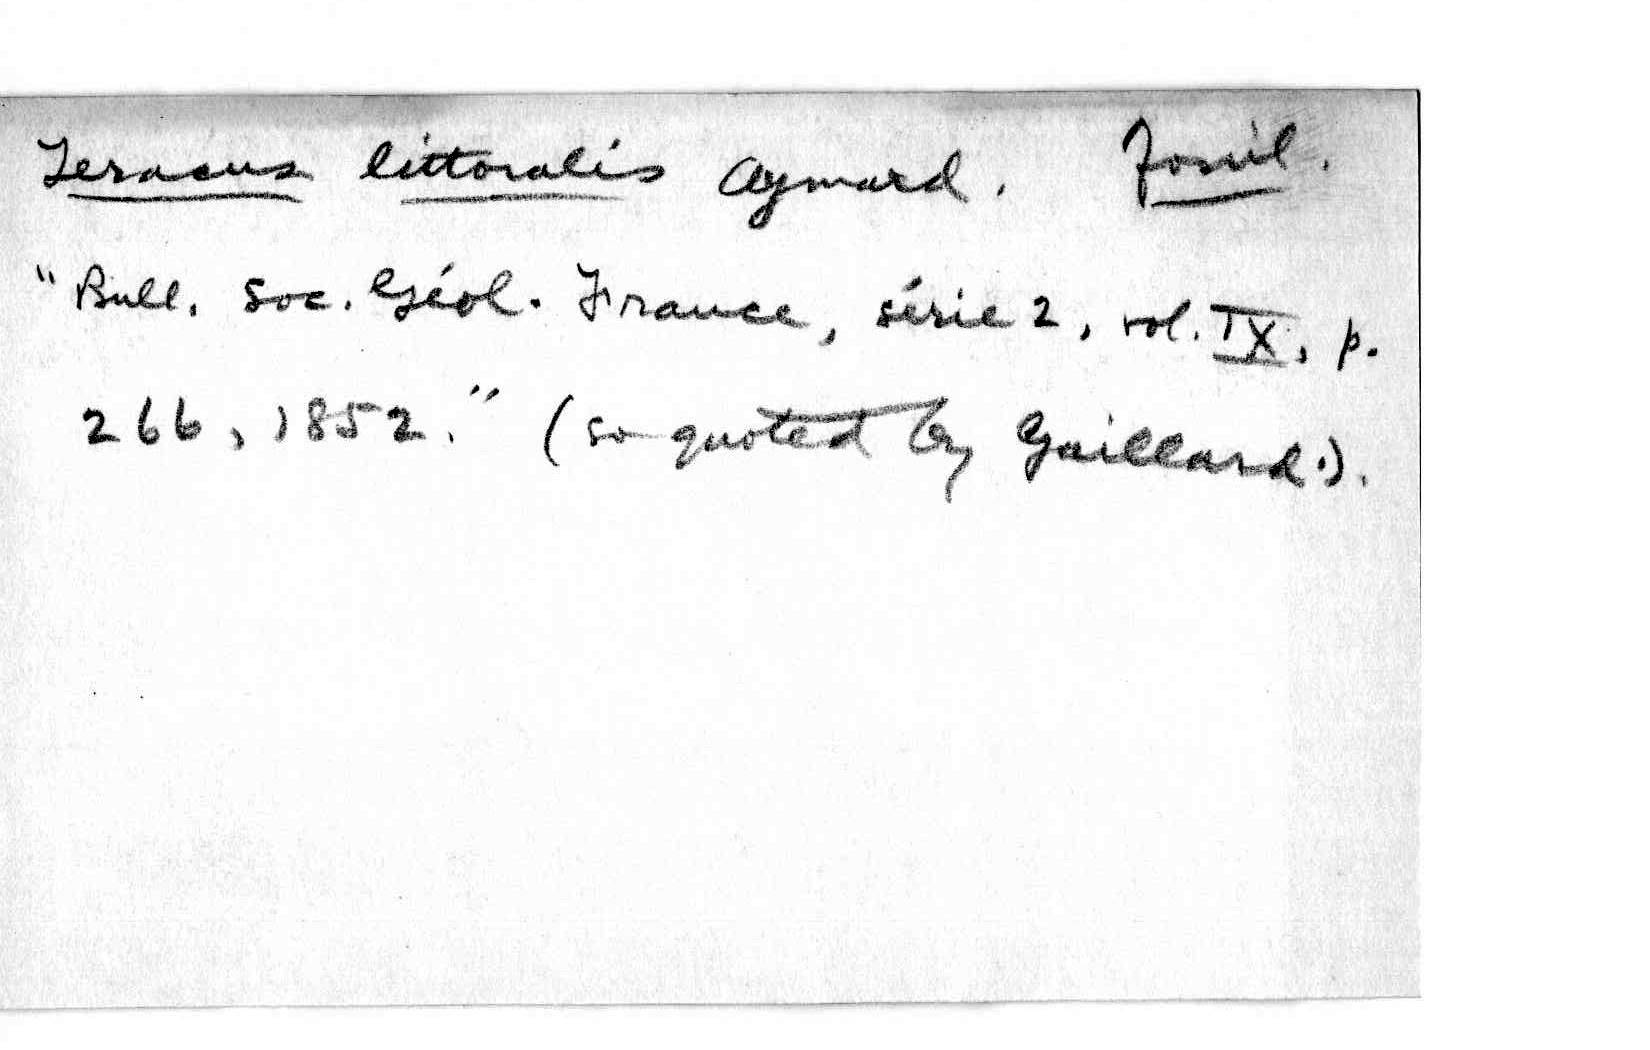 Teracus littoralis Aymard. Fossil.
"Bull. Soc. Géol. France, série 2, vol. IX, p.
266, 1852." (so quoted by Gaillard.).